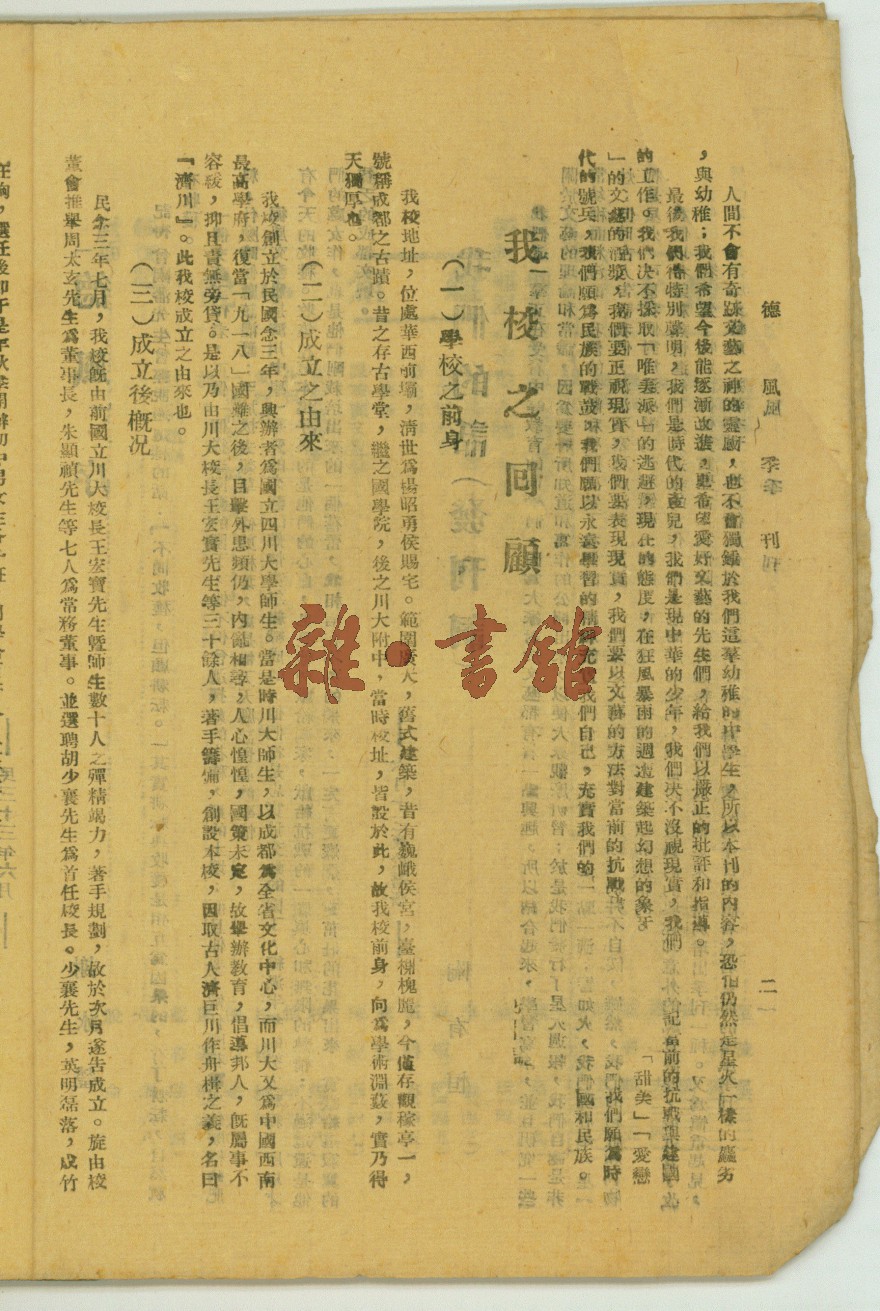 德風 季刊 二
人間不會有奇跡文藝之神的靈廟，也不會獨鍾於我們這羣幼稚的中學生，所以本刊的內容，恐怕仍然是星火一樣的麤劣
，與幼稚；我們希望今後能逐漸改進，更希望愛好文藝的先生們，給我們以嚴正的批評和指導。
最後我們得特別聲明，我們是時代的產兒，我們是現中華的少年，我們決不沒視現實，我們 記當前的抗戰與建國
的工作。我們決不採取「唯美派」的逃避現在的態度，在狂風暴雨的週遭建築起幻想的象牙 「甜美」「愛戀
」的文藝的 ，我們要正視現實，我們要表現現實，我們要以文藝的方法對當前的抗戰 我們願為時
代的號兵，我們願為民族的戰鼓，我們願以永遠學習的精神充實我們自己，充實我們的 國和民族。
我校之回顧
（一）學校之前身
我校地址，位處華西前壩，清世為楊昭勇侯賜宅。範圍廣大，舊式建築，昔有巍峨侯宮，臺榭槐 ，今僅存觀稼亭一，
號稱成都之古蹟。昔之存古學堂，繼之國學院，後之川大附中，當時校址，皆設於此，故我校前身，向為學術淵藪，實乃得
天獨厚也。
（二）成立之由來
我校創立於民國念三年，興辦者為國立四川大學師生。當是時川大師生，以成都為全省文化中心，而川大又為中國西南
最高學府，復當「九一八」國難之後，目擊外患頻仍，內亂相尋，人心惶惶，國策未定，故舉辦教育，倡導邦人，既屬事不
容緩，抑且責無旁貸。是以乃由川大校長王宏實先生等三十餘人，著手籌備，創設本校，因取古人濟巨川作舟楫之義，名曰
「濟川」。此我校成立之由來也。
（三）成立後概況
民念三年七月，我校既由前國立川大校長王宏實先生暨師生數十人之彈精竭力，著手規劃，故於次月遂告成立。旋由校
董會推舉周太玄先生為董事長，朱顯禎先生等七人為常務董事。並選聘胡少襄先生為首任校長。少襄先生，英明磊落，成竹
在胸，選任後即于是年秋季開辦初中男女生
雜·書館